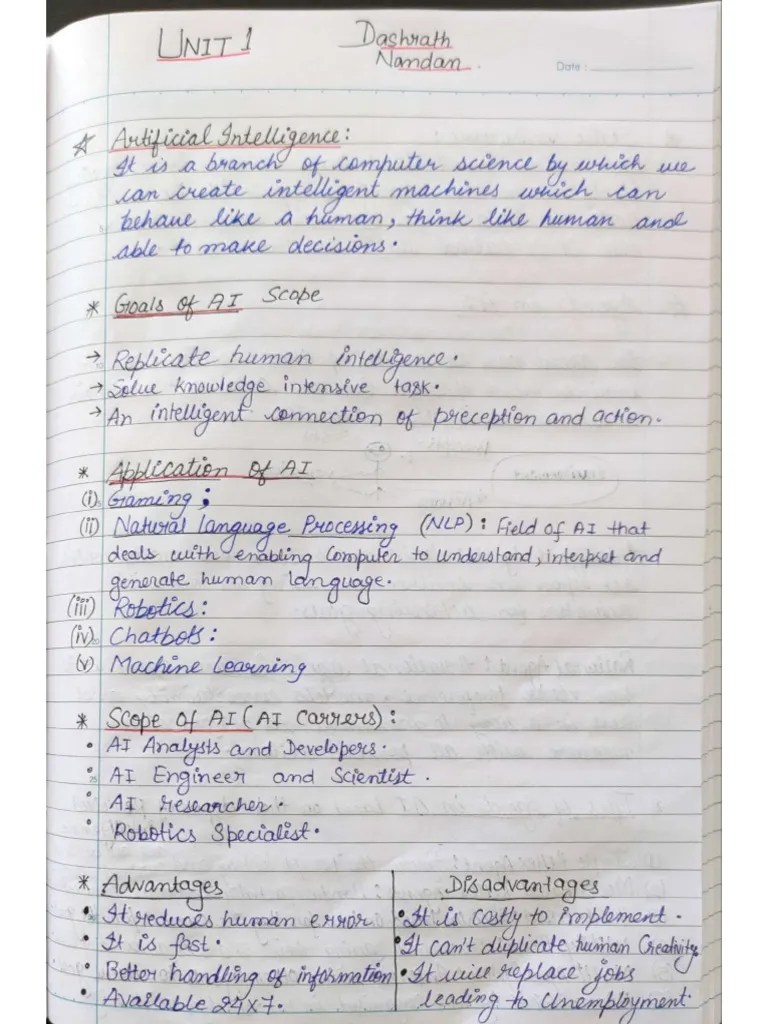 UNIT 1 Dashrath
Nandan.
Date:
☆ Artificial Intelligence:
It is a branch of computer science by which we
can create intelligent machines which can
behave like a human, think like human and
able to make decisions.
* Goals of AI Scope
→ Replicate human intelligence.
→ Solve knowledge intensive task.
→ An intelligent connection of preception and action.
* Application of AI
(i) Gaming;
(ii) Natural language Processing (NLP): Field of AI that
deals with enabling Computer to Understand, interpset and
generate human language.
(iii) Robotics:
(iv) Chatbots:
(v) Machine Learning
* Scope of AI (AI Carrers):
• AI Analysts and Developers.
• AI Engineer and Scientist.
• AI researcher.
• Robotics Specialist.
* Advantages Disadvantages
• It reduces human error • It is costly to implement.
• It is fast. • It can't duplicate human Creativity
• Better handling of information • It will replace jobs
• Available 24x7. leading to Unemployment.